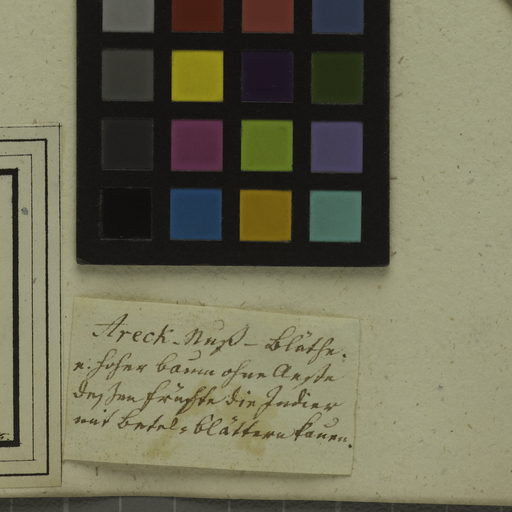 Areck-Nuß-Blüthe.
e: hoher baum ohne Aeste
dessen früchte die Indier
mit betel-blättern kauen.